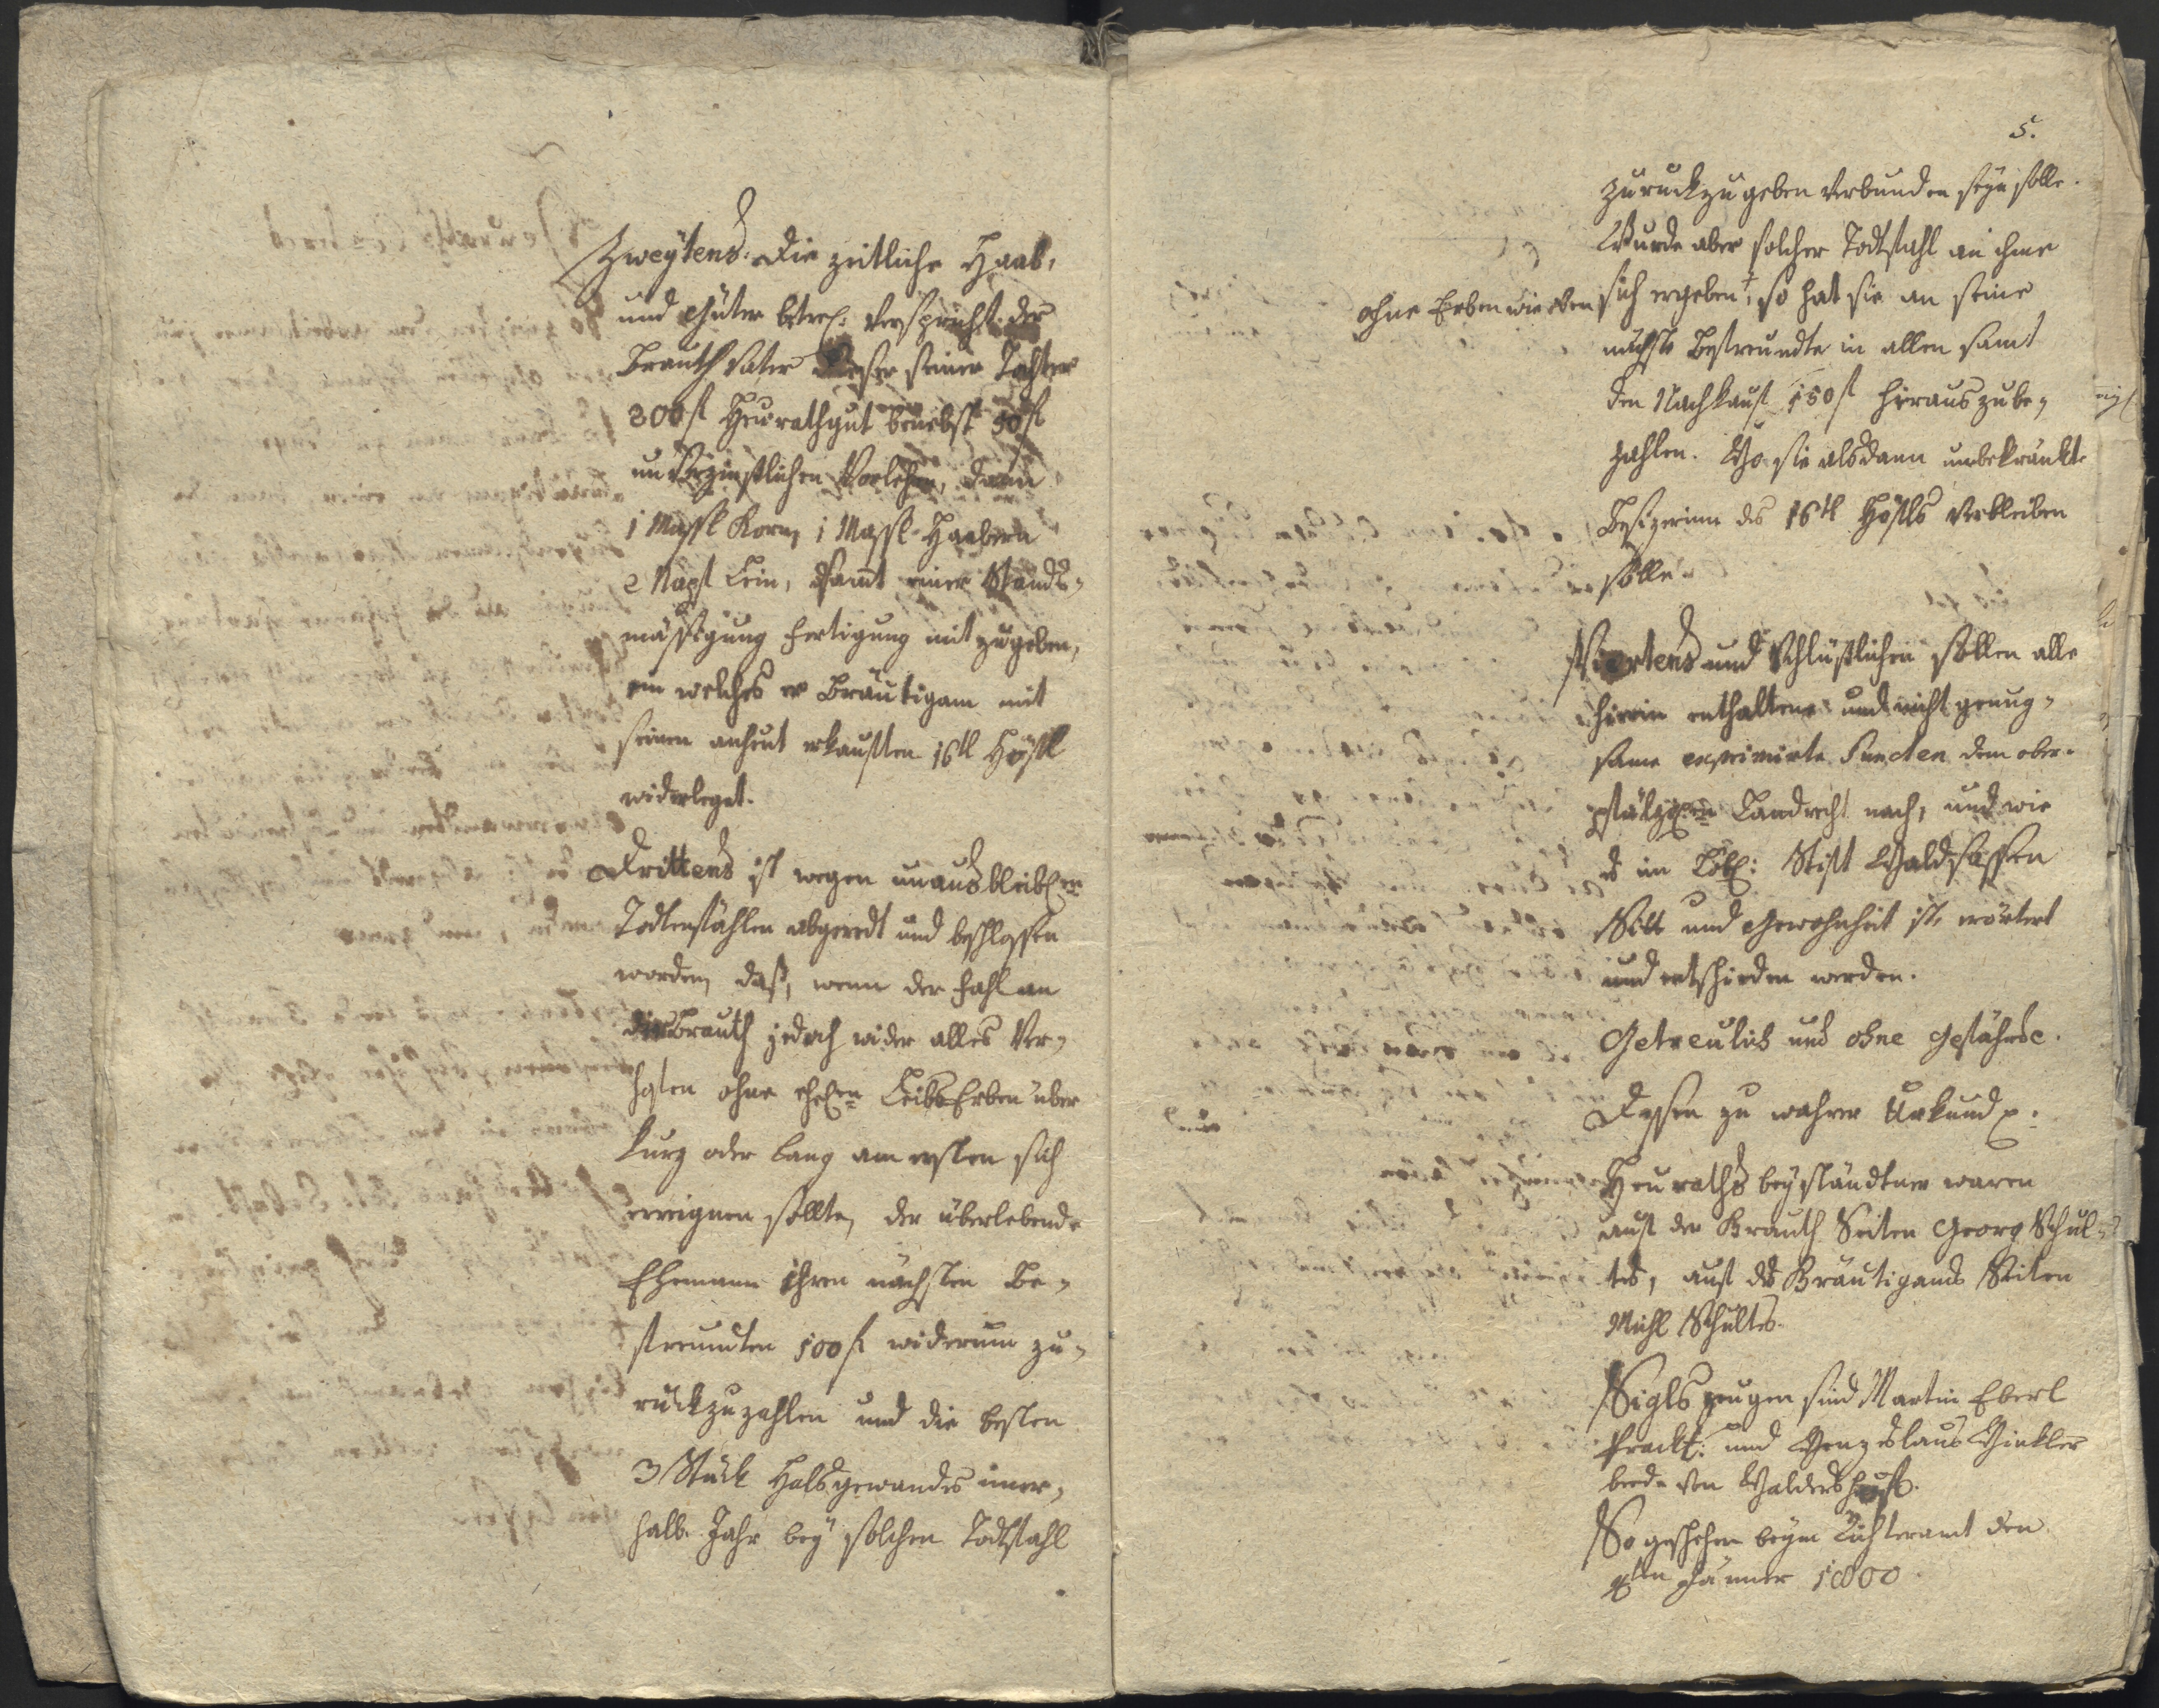 Zweytens: Die zeitliche Haab,
und Güter betref: verspricht der
Brauth Vater dieser seiner Tochter
300 fl Heurathgut benebst 50 fl
unverzinslichen Vorlehen, dann
1 Massl Korn, 1 Massl Haabern
2 Napf Lein, samt einer Stands-
mässigung Fertigung mit zugeben,
ein welches er Bräutigam mit
seinen anheut erkauften 16tl Höfl
widerleget.
Drittens ist wegen unausbleibl:en
Todtenfählen abgeredt und beschlossen
worden, daß, wenn der Fahl an
die Brauth jedoch wider alles Ver-
hofen ohne ehel:en LeibsErben über
kurz oder lang am ersten sich
ereignen sollte, der überlebende
Ehemann ihren nächsten Be-
freundten 100 fl widerum zu-
rückzuzahlen und die besten
3 Stück Halsgewandes inner-
halb Jahr bey solchen Todtfahl
5.
zuruckzugeben verbunden seyn solle.
Wurde aber solcher Todtfahl an ihme
ohne Erben wie oben sich ergeben, so hat sie an seine
nächste Befreundte in allen samt
den Nachkauf 150 fl hinauszube-
zahlen. Wo sie alsdann unbekränkte
Besizerinn des 16tl Höfls verbleiben
solle.
Viertens und Schlüßlichen sollen alle
hierin enthaltene und nicht genug-
same exprimirte Puncten dem ober-
pfälzis:en Landrecht nach, und wie
es im Löbl: Stift Waldsassen
Sitt und Gewohnheit ist, erörtert
und entschieden werden.
Getreulich und ohne Gefährde.
Dessen zu wahrer Urkund p:
Heuraths beyständtner waren
auf der Brauth Seiten Georg Schul-
tes, auf des Bräutigams Seiten
Michl Schultes.
Sigls zeugen sind Martin Eberl
Prackt: und Wenzeslaus Winkler
beede von Waldershof.
So geschehen beym Richteramt den
Jänner 1800.